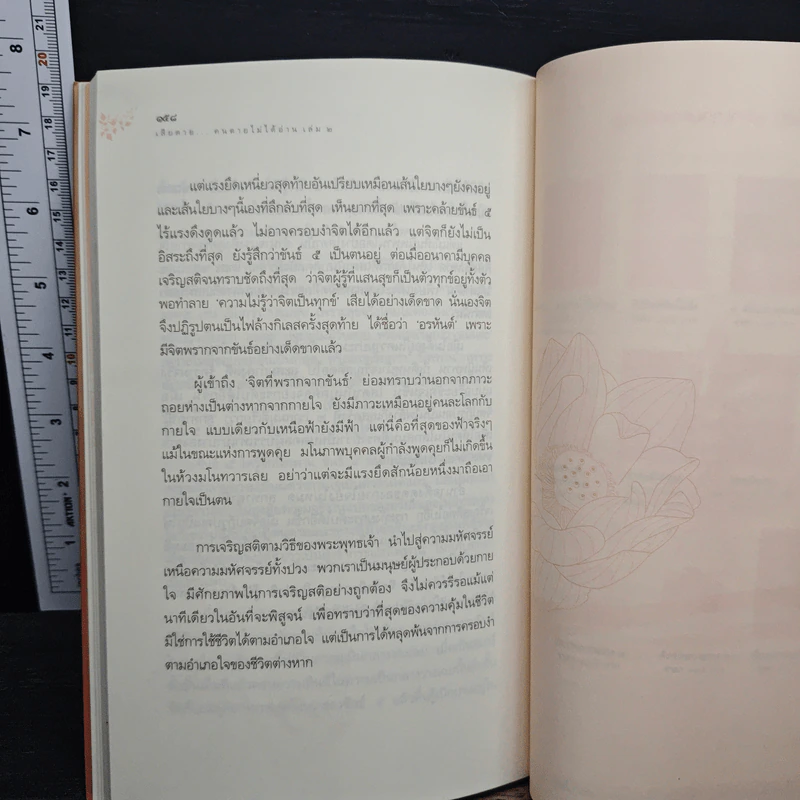 ๑๕๘
เสียดาย... คนตายไม่ได้อ่าน เล่ม ๒
แต่แรงยึดเหนี่ยวสุดท้ายอันเปรียบเหมือนเส้นใยบางๆยังคงอยู่
และเส้นใยบางๆนี้เองที่ลึกลับที่สุด เห็นยากที่สุด เพราะคล้ายขันธ์ ๕
ไร้แรงดึงดูดแล้ว ไม่อาจครอบงำจิตได้อีกแล้ว แต่จิตก็ยังไม่เป็น
อิสระถึงที่สุด ยังรู้สึกว่าขันธ์ ๕ เป็นตนอยู่ ต่อเมื่ออนาคามีบุคคล
เจริญสติจนทราบชัดถึงที่สุด ว่าจิตผู้รู้ที่แสนสุขก็เป็นตัวทุกข์อยู่ทั้งตัว
พอทำลาย 'ความไม่รู้ว่าจิตเป็นทุกข์' เสียได้อย่างเด็ดขาด นั่นเองจิต
จึงปฏิรูปตนเป็นไฟล้างกิเลสครั้งสุดท้าย ได้ชื่อว่า 'อรหันต์' เพราะ
มีจิตพรากจากขันธ์อย่างเด็ดขาดแล้ว
ผู้เข้าถึง 'จิตที่พรากจากขันธ์' ย่อมทราบว่านอกจากภาวะ
ถอยห่างเป็นต่างหากจากกายใจ ยังมีภาวะเหมือนอยู่คนละโลกกับ
กายใจ แบบเดียวกับเหนือฟ้ายังมีฟ้า แต่นี่คือที่สุดของฟ้าจริงๆ
แม้ในขณะแห่งการพูดคุย มโนภาพบุคคลผู้กำลังพูดคุยก็ไม่เกิดขึ้น
ในห้วงมโนทวารเลย อย่าว่าแต่จะมีแรงยึดสักน้อยหนึ่งมาถือเอา
กายใจเป็นตน
การเจริญสติตามวิธีของพระพุทธเจ้า นำไปสู่ความมหัศจรรย์
เหนือความมหัศจรรย์ทั้งปวง พวกเราเป็นมนุษย์ผู้ประกอบด้วยกาย
ใจ มีศักยภาพในการเจริญสติอย่างถูกต้อง จึงไม่ควรรีรอแม้แต่
นาทีเดียวในอันที่จะพิสูจน์ เพื่อทราบว่าที่สุดของความคุ้มในชีวิต
มิใช่การใช้ชีวิตได้ตามอำเภอใจ แต่เป็นการได้หลุดพ้นจากการครอบงำ
ตามอำเภอใจของชีวิตต่างหาก